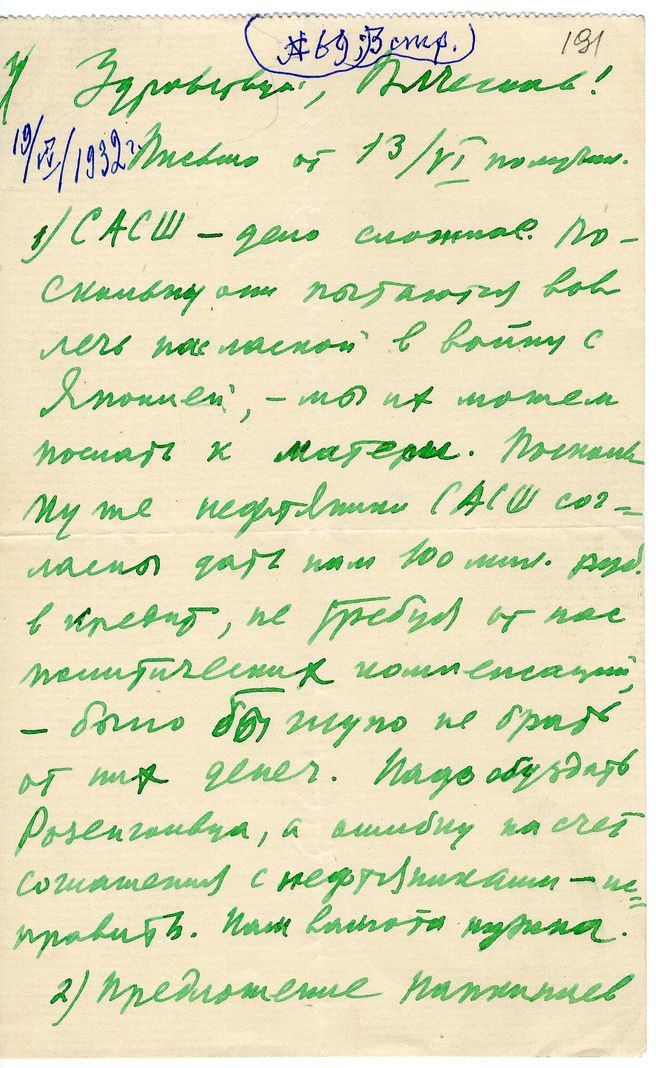 № 69; 3 стр.)
191
Здравствуй, Вячеслав!
19/VI/1932 г.
Письмо от 13/VI получил.
1) САСШ – дело сложное. По-
скольку они пытаются вов
лечь нас лаской в войну с
Японией, – мы их можем
послать к матери. Посколь
ку же нефтяники САСШ сог-
ласны дать нам 100 мил. руб.
в кредит, не требуя от нас
политических компенсаций,
– было бы глупо не брать
от них денег. Надо обуздать
Розенгольца, а ошибку на счет
соглашения с нефтяниками – ис-
править. Нам валюта нужна.
2) Предложение